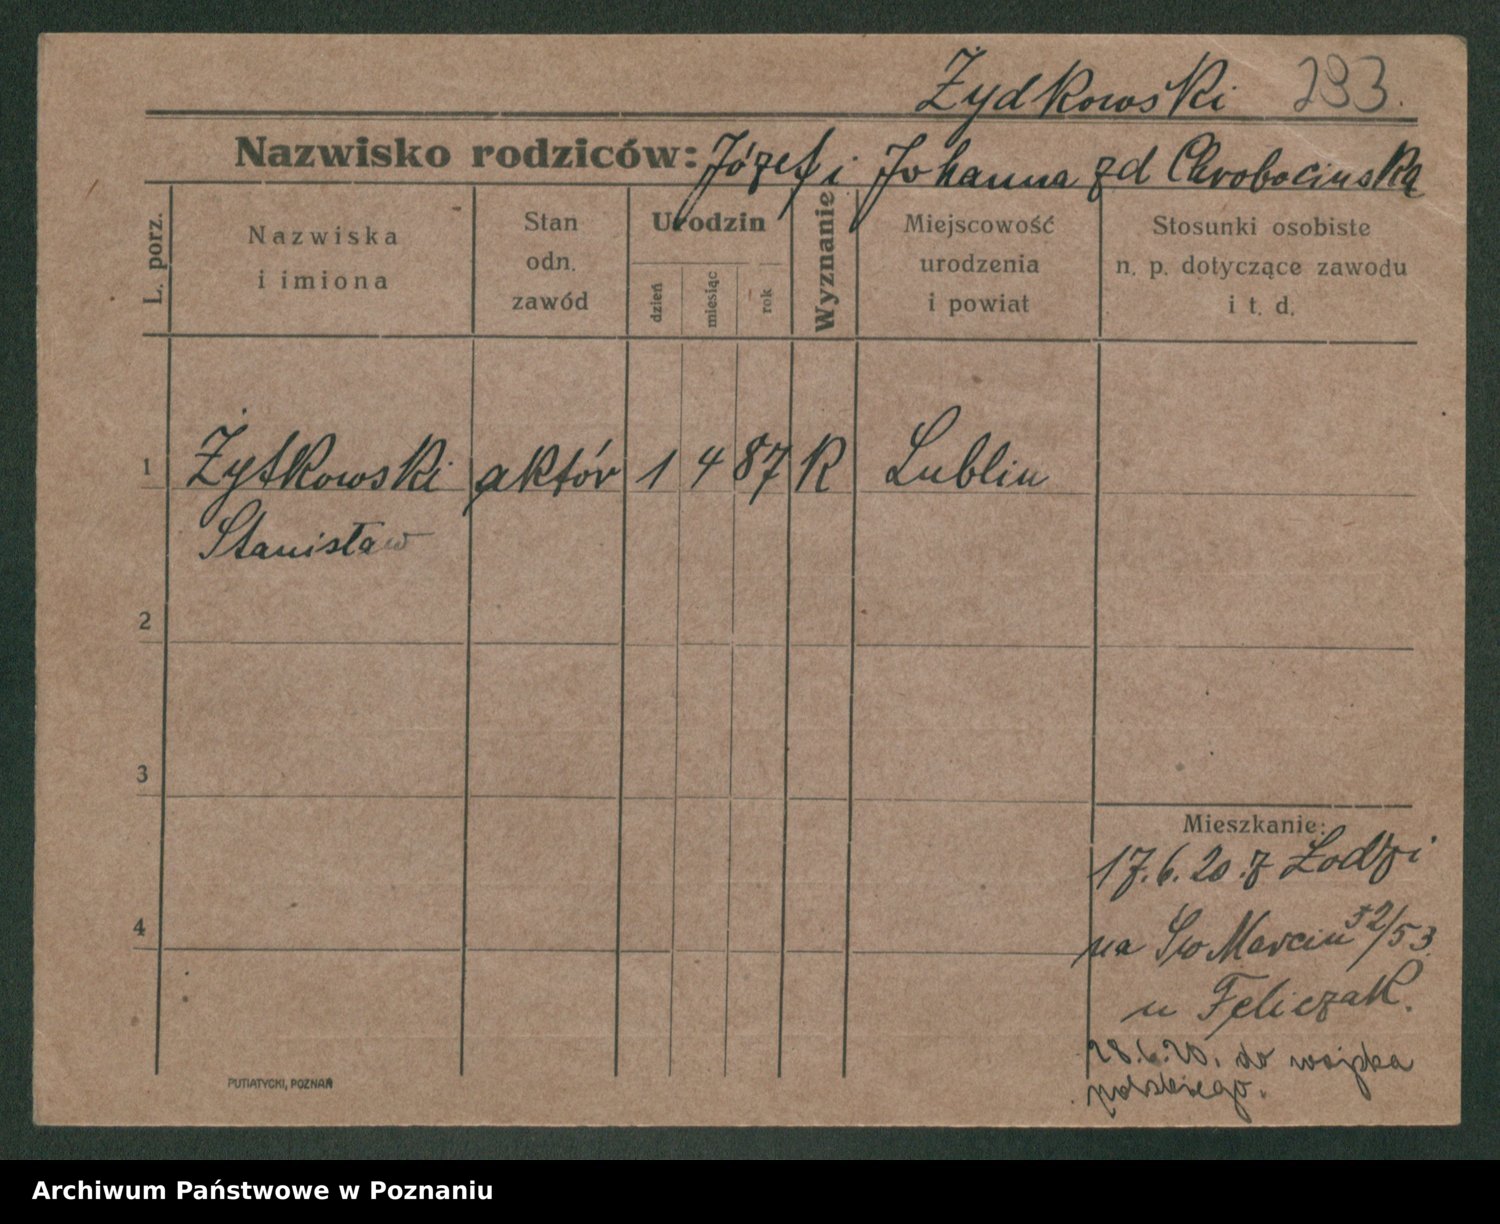 Żydkowski 293.
Nazwisko rodziców: Józef i Johanna zd Chrobocinska
L. porz.
Nazwiska
i imiona
Stan
odn.
zawód
Urodzin
dzień
miesiąc
rok
Wyznanie
Miejscowość
urodzenia
i powiat
Stosunki osobiste
n. p. dotyczące zawodu
i t. d.
1 Żytkowski aktór 1 4 87 K Lublin
Stanisław
2
3
4
Mieszkanie:
17.6.20 z Łodzi
na Św Marcin 52/53
u Feliczak.
28.6.20. do wojska
polskiego.
PUTIATYCKI, POZNAŃ
Archiwum Państwowe w Poznaniu